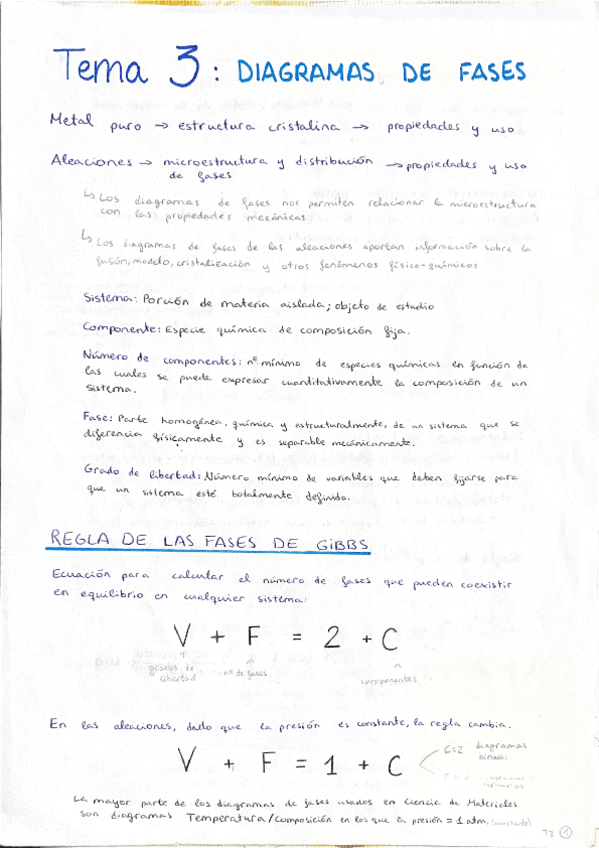 Tema 3: DIAGRAMAS DE FASES
Metal puro → estructura cristalina → propiedades y uso
Aleaciones → microestructura y distribución → propiedades y uso
de fases
↳ Los diagramas de fases nos permiten relacionar la microestructura
con las propiedades mecánicas
↳ Los diagramas de fases de las aleaciones aportan información sobre la
fusón, modelo, cristalización y otros fenómenos físico-químicos
Sistema: Porción de materia aislada; objeto de estudio
Componente: Especie química de composición fija.
Número de componentes: nº mínimo de especies químicas en función de
las cuales se puede expresar cuantitativamente la composición de un
sistema.
Fase: Parte homogénea, química y estructuralmente, de un sistema que se
diferencia físicamente y es separable mecánicamente.
Grado de libertad: Número mínimo de variables que deben fijarse para
que un sistema esté totalmente definido.
REGLA DE LAS FASES DE GIBBS
Ecuación para calcular el número de fases que pueden coexistir
en equilibrio en cualquier sistema:
V + F = 2 + C
grados de
libertad
nº de fases
componentes
En las aleaciones, dado que la presión es constante, la regla cambia.
V + F = 1 + C
C=2 diagramas
binarios
La mayor parte de los diagramas de fases usados en Ciencia de Materiales
son diagramas Temperatura/composición en los que la presión = 1 atm. (constante)
T3 1